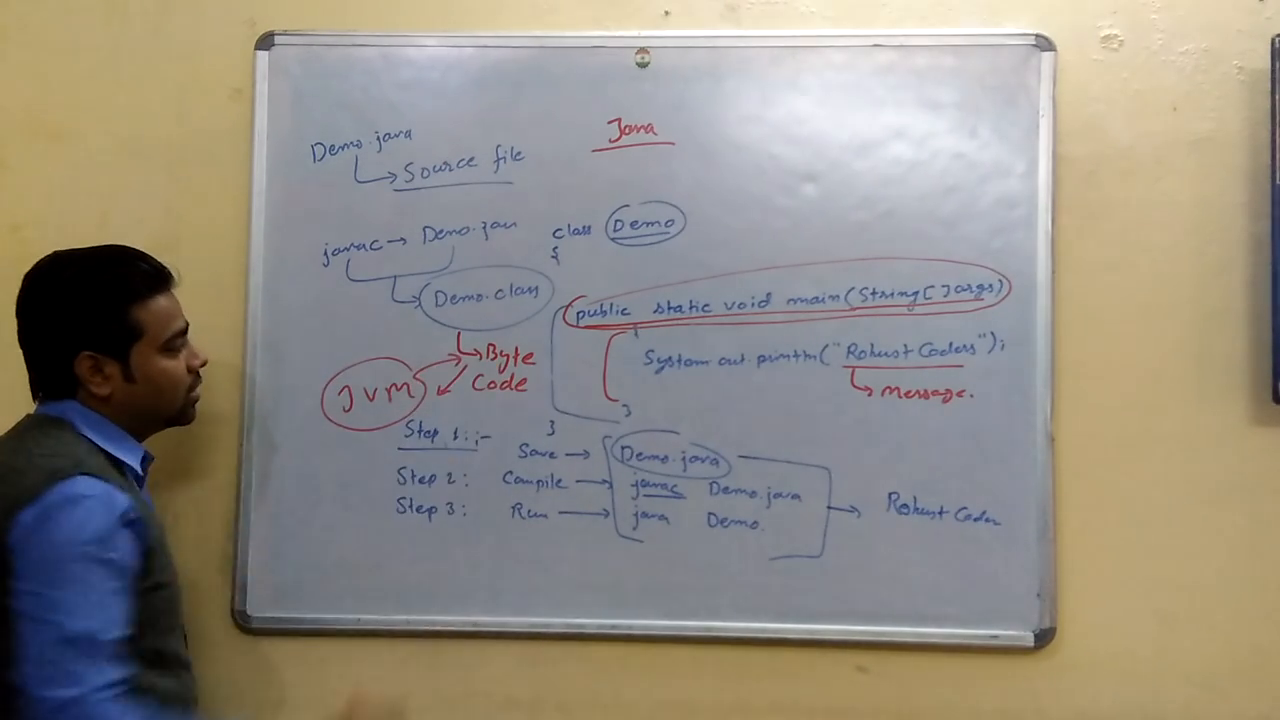 Java
Demo.java
Source file
javac → Demo.java
Demo.class
Byte
Code
JVM
class Demo
{
public static void main(String[]args)
{
System.out.println("Robust Coders");
Message.
}
}
Step 1:;-
Save → Demo.java
Step 2: Compile → javac Demo.java
Step 3: Run → java Demo.
Robust Coder